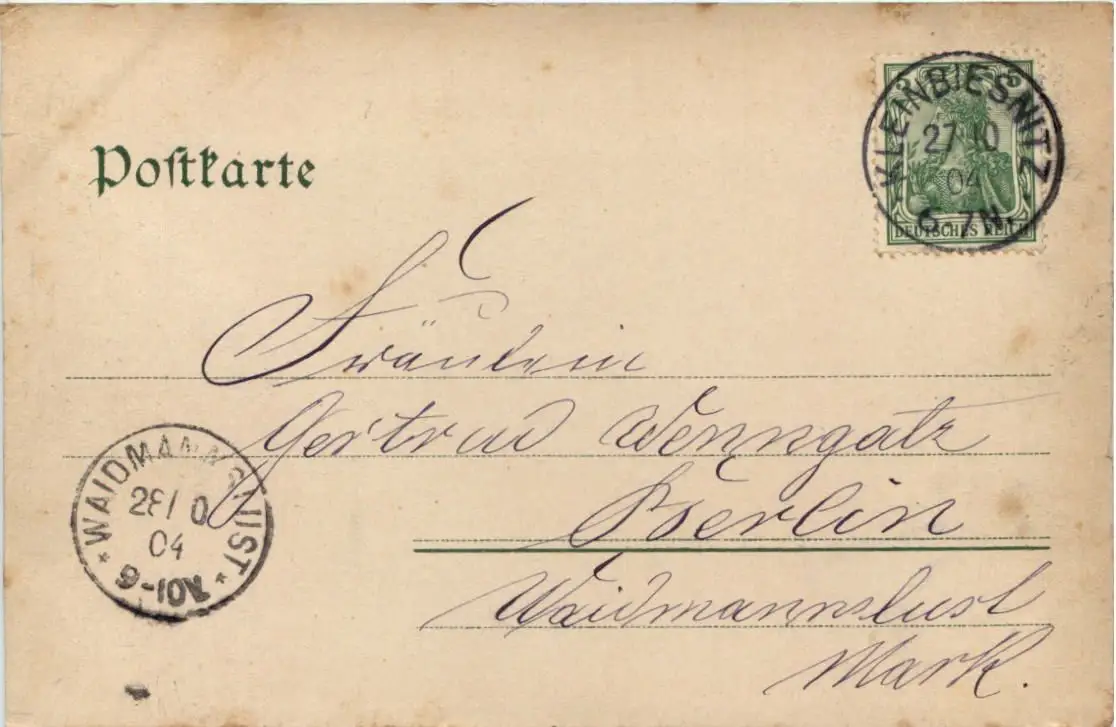 Postkarte
KLEINBIESNITZ
27 10
04
6-7N.
5 5
DEUTSCHES REICH
Fräulein
Gertrud Wenngatz
Berlin
Waidmannslust
Mark.
* WAIDMANNSLUST *
28 10
04
9-10V